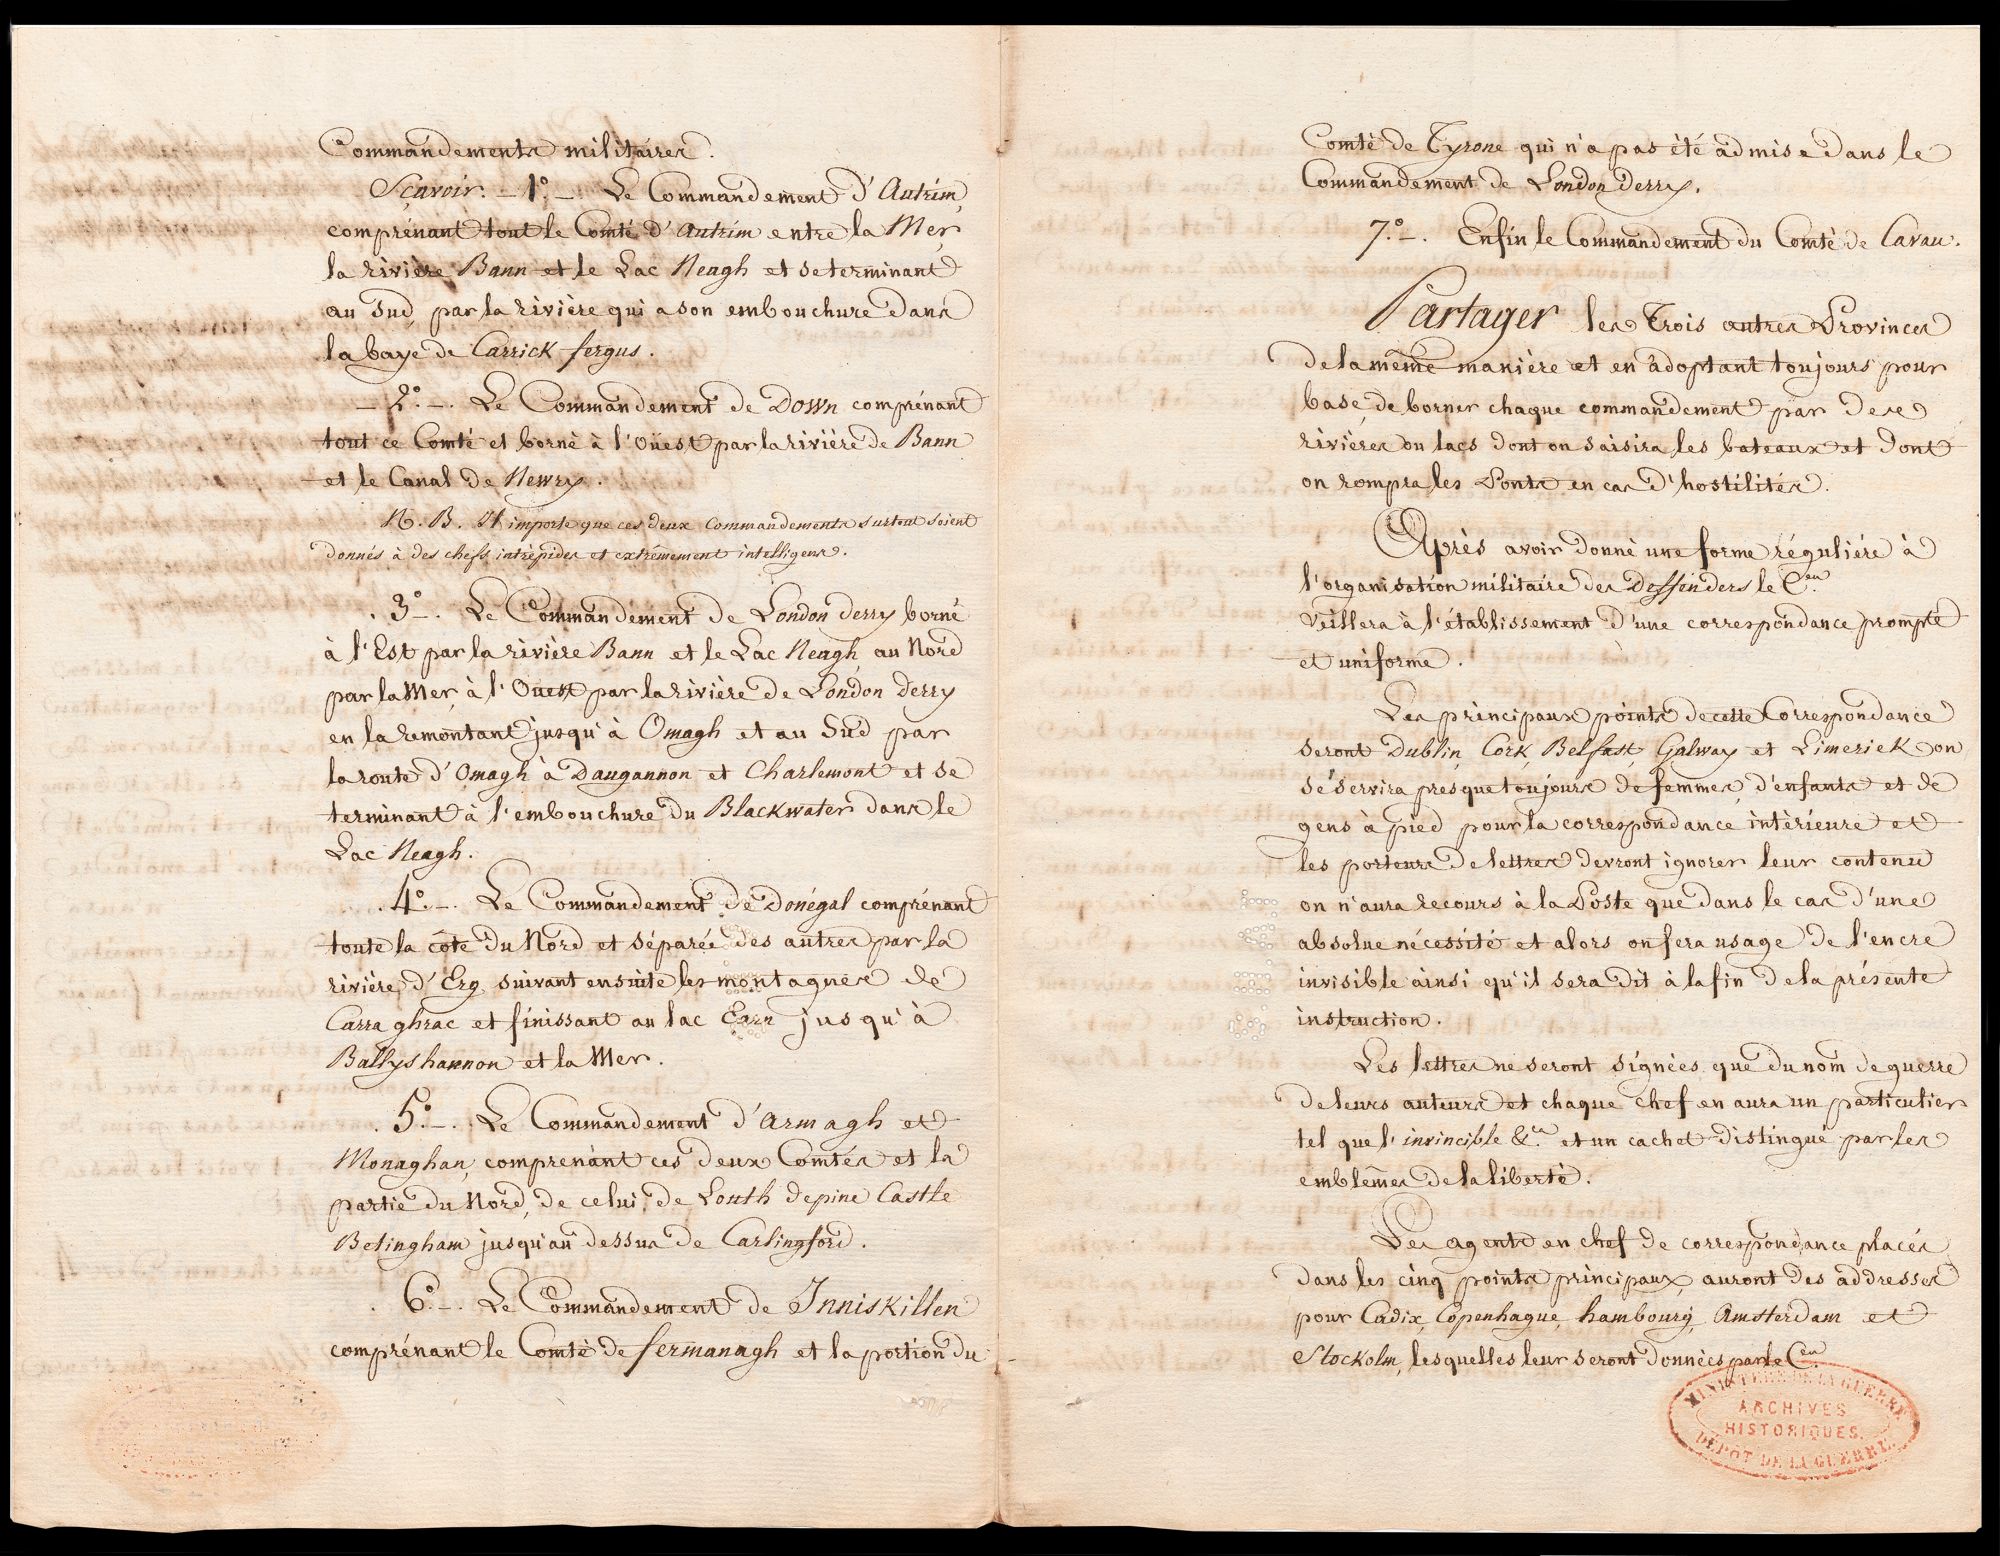 Commandements militaires.
Sçavoir. — 1°. — Le Commandement d'Antrim,
comprénant tout le Comté d'Antrim entre la Mer,
la rivière Bann et le Lac Neagh et se terminant
au Sud, par la rivière qui a son embouchure dans
la baye de Carrick fergus.
— 2°. —. Le Commandement de Down comprénant
tout ce Comté et borné à l'Oüest par la rivière de Bann
et le Canal de Newry.
N. B. Il importe que ces deux commandements surtout soient
donnés à des chefs intrépides et extrémement intelligens.
. 3°. —. Le Commandement de London derry borné
à l'Est par la rivière Bann et le Lac Neagh, au Nord
par la Mer, à l'Ouest par la rivière de London derry
en la remontant jusqu'à Omagh et au Sud par
la route d'Omagh à Daugannon et Charlemont et se
terminant à l'embouchure du Blackwater dans le
Lac Neagh.
. 4°. —. Le Commandement de Donégal comprénant
toute la côte du Nord et séparée des autres par la
rivière d'Erg, suivant ensuite les montagnes de
Carra ghrac et finissant au lac Earn jusqu'à
Ballyshannon et la Mer.
. 5°. —. Le Commandement d'Armagh et
Monaghan, comprenant ces deux Comtés et la
partie du Nord, de celui, de Louth depine Castle
Betingham jusqu'au dessus de Carlingford.
. 6°. —. Le Commandement de Inniskillen
comprénant le Comté de fermanagh et la portion du
Comté de Tyrone qui n'a pas été admise dans le
Commandement de London derry.
7°. —. Enfin le Commandement du Comté de Cavan.
Partager les Trois autres Provinces
de la même manière et en adoptant toujours pour
base, de borner chaque commandement par des
rivières ou lacs dont on saisira les bateaux et dont
on rompra les Ponts en cas d'hostilités.
Après avoir donné une forme réguliére à
l'organisation militaire des Deffenders le C.en
veillera à l'établissement d'une correspondance prompte
et uniforme.
Les principaux points de cette Correspondance
seront Dublin, Cork, Belfast, Galway et Limerick on
se servira presque toujours de femmes, d'enfants et de
gens à pied pour la correspondance intèrieure et
les porteurs de lettres devront ignorer leur contenu
on n'aura recours à la Poste que dans le cas d'une
absolue nécessité et alors on fera usage de l'encre
invisible ainsi qu'il sera dit à la fin de la présente
instruction.
Les lettres ne seront signées que du nom de guerre
de leurs auteurs et chaque chef en aura un particulier
tel que l'invincible &.a et un cachet distingué par les
emblêmes de la liberté.
Les agents en chef de correspondance placés
dans les cinq points principaux, auront des addresses
pour Cadix, Copenhague, hambourg, Amsterdam et
Stockolm, lesquelles leur seront données par le C.en
MINISTERE DE LA GUERRE
ARCHIVES
HISTORIQUES.
DÉPÔT DE LA GUERRE.